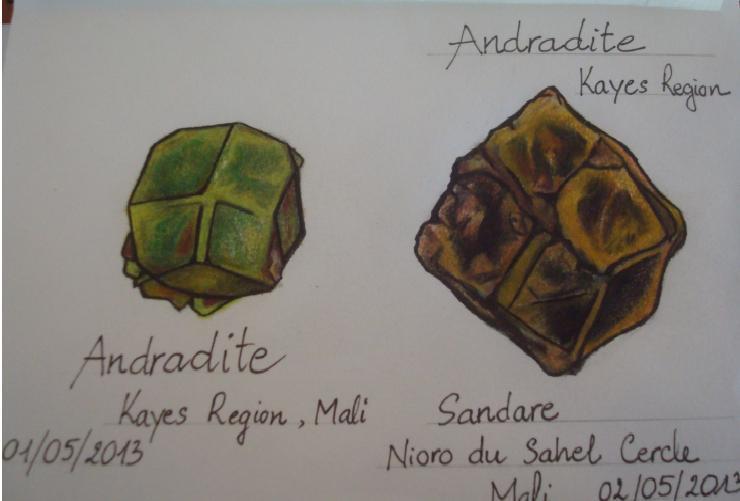 Andradite
Kayes Region
Andradite
Kayes Region, Mali
01/05/2013
Sandare
Nioro du Sahel Cercle
Mali 02/05/2013